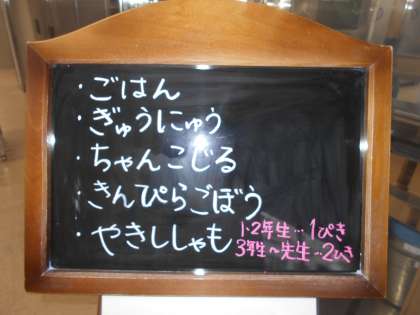 ・ごはん
・ぎゅうにゅう
・ちゃんこじる
きんぴらごぼう
・やきししゃも
1・2年生…1ぴき
3年生〜先生…2ひき